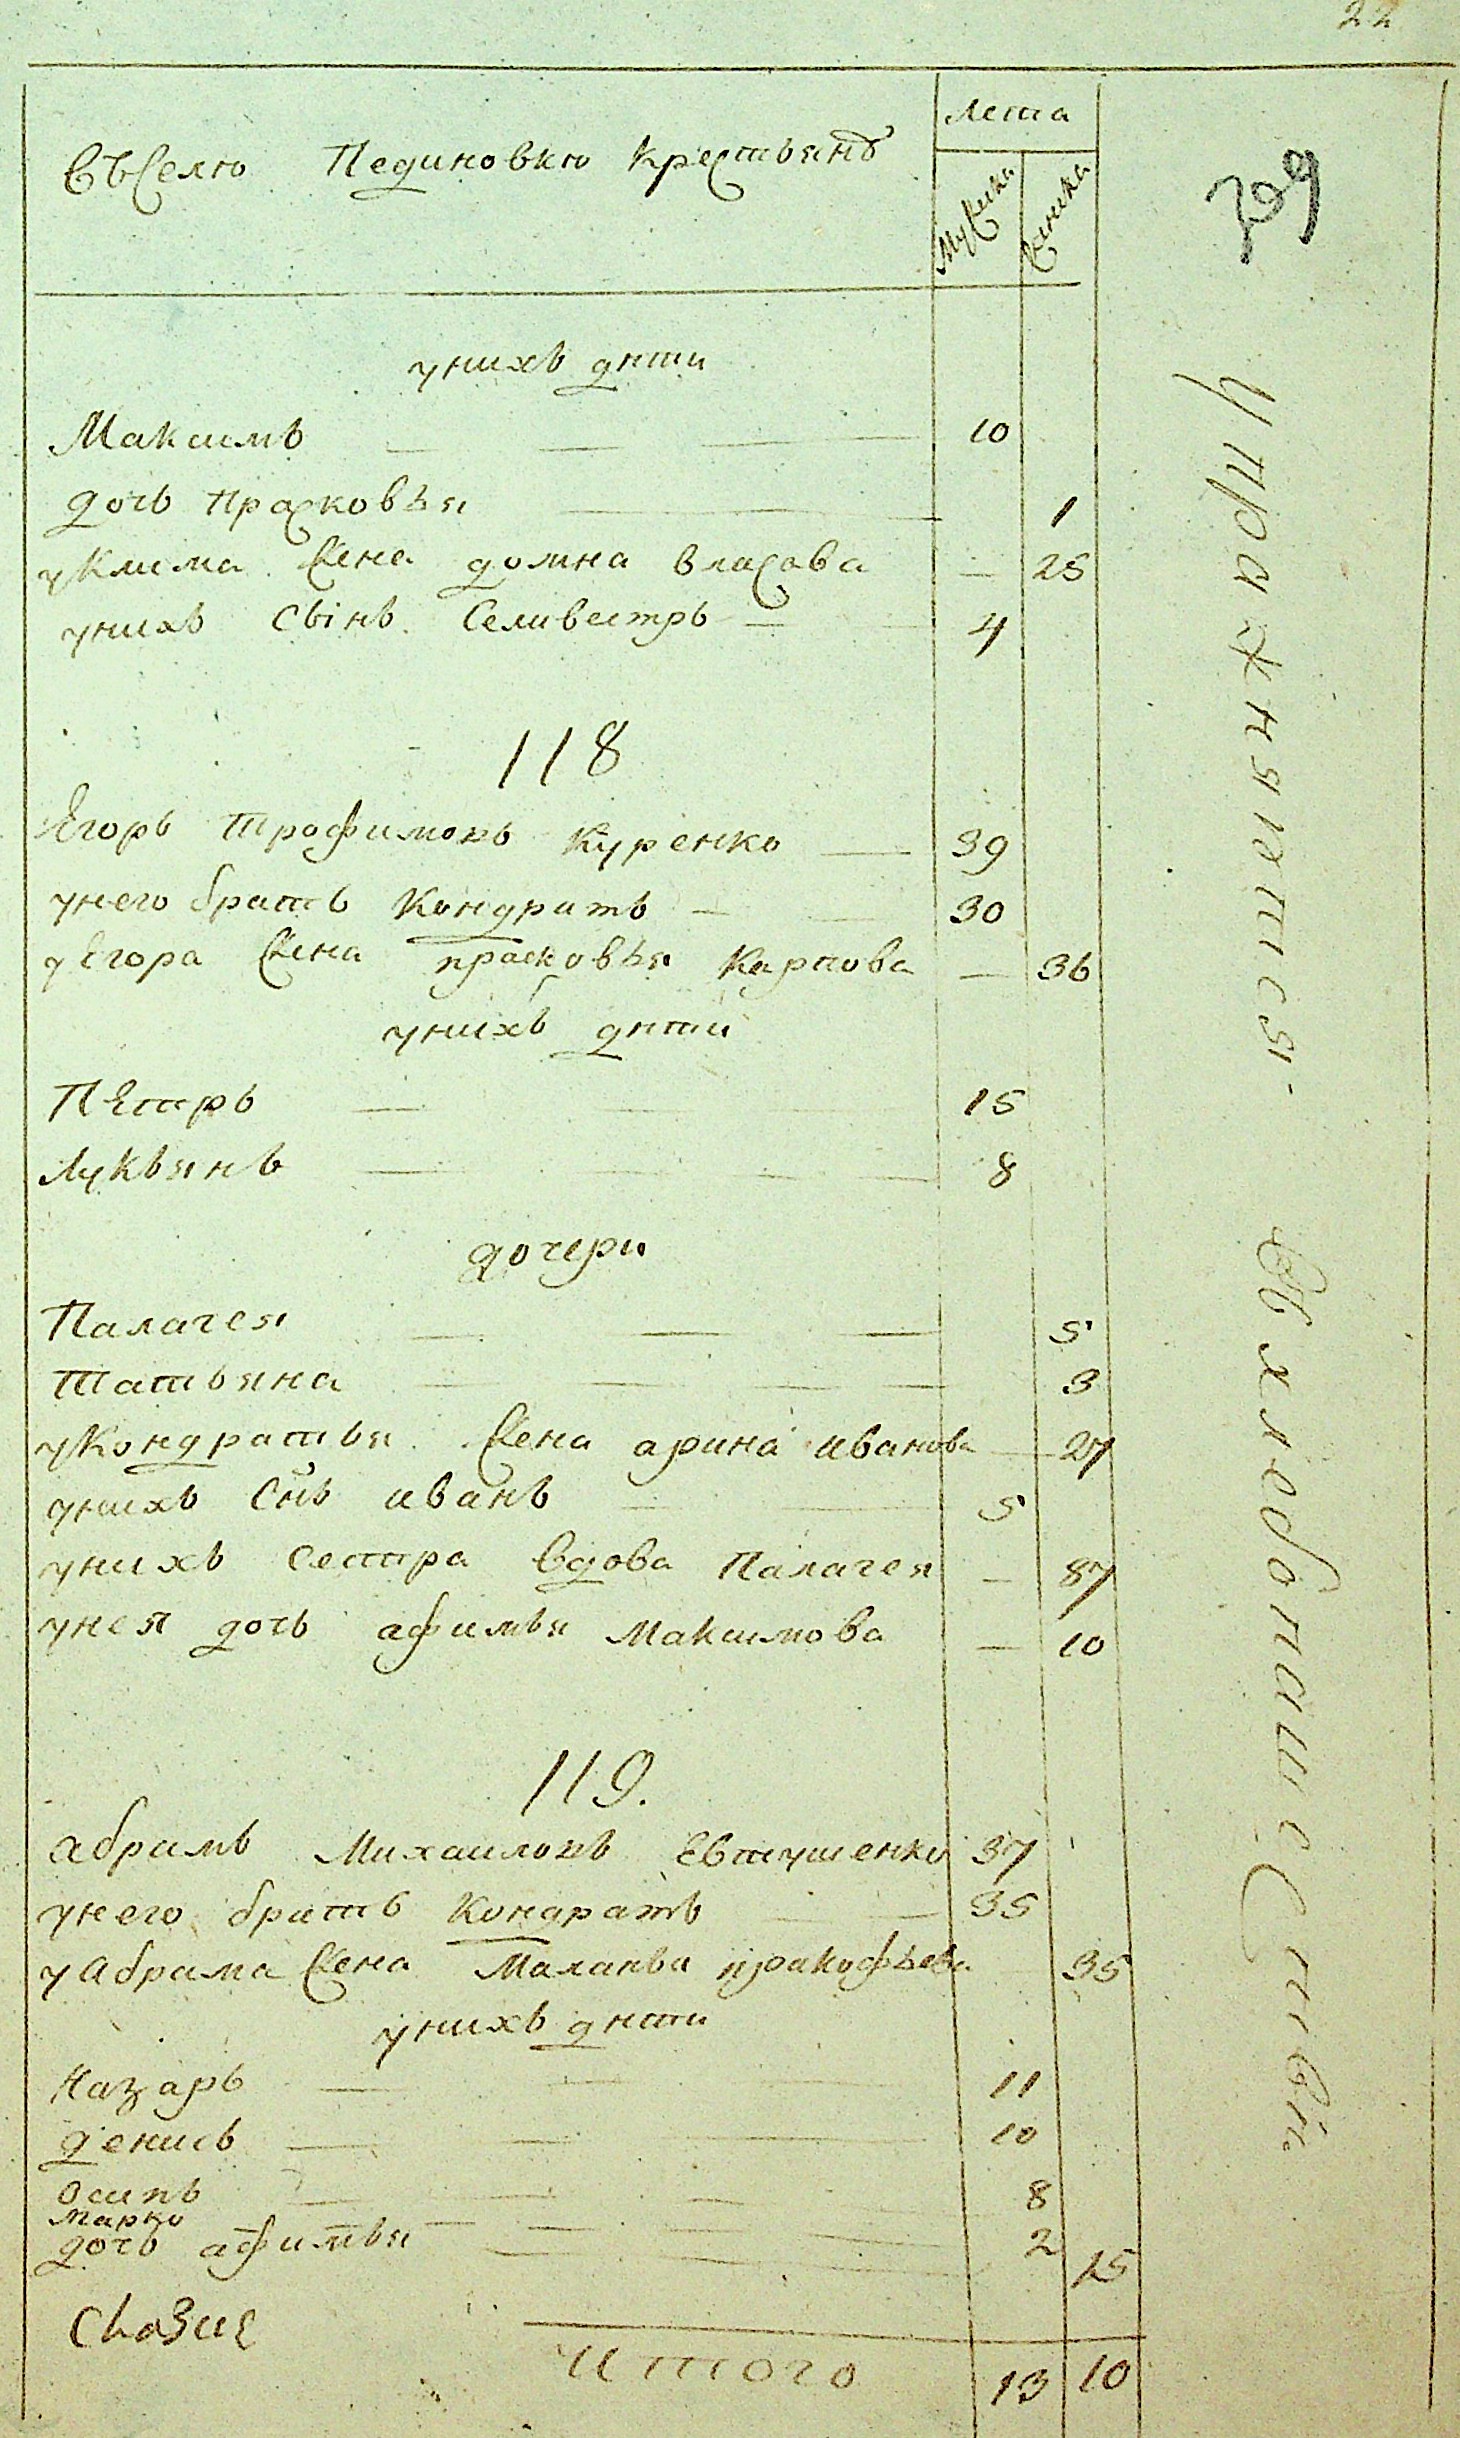 22
Лета
въ Селю Пединовкю крестьянъ
Мужска
женска
729
унихъ дети
Максимъ 10
дочь Прасковья 1
уКлима жена домна власова — 25
унихъ сынъ Селивестръ — 4
118
Егоръ Трофимовъ Куренко — 39
унего братъ Кондратъ — 30
уЕгора жена прасковья Карпова — 36
унихъ дети
Петръ 15
Лукьянъ 8
дочери
Палагея 5
Татьяна 3
уКондратья жена арина иванова — 27
унихъ Снъ иванъ 5
унихъ сестра вдова Палагея — 87
унея дочь афимья Максимова — 10
119.
абрамъ Михаиловъ Евтушенко 37
унего братъ Кондратъ — 35
уабрама жена Маланья пракофьева 35
унихъ дети
Назаръ 11
денисъ 10
Осипъ 8
Марко 2
дочь афимья 15
Итого 13 10
Упражняется въ хлебопашестве